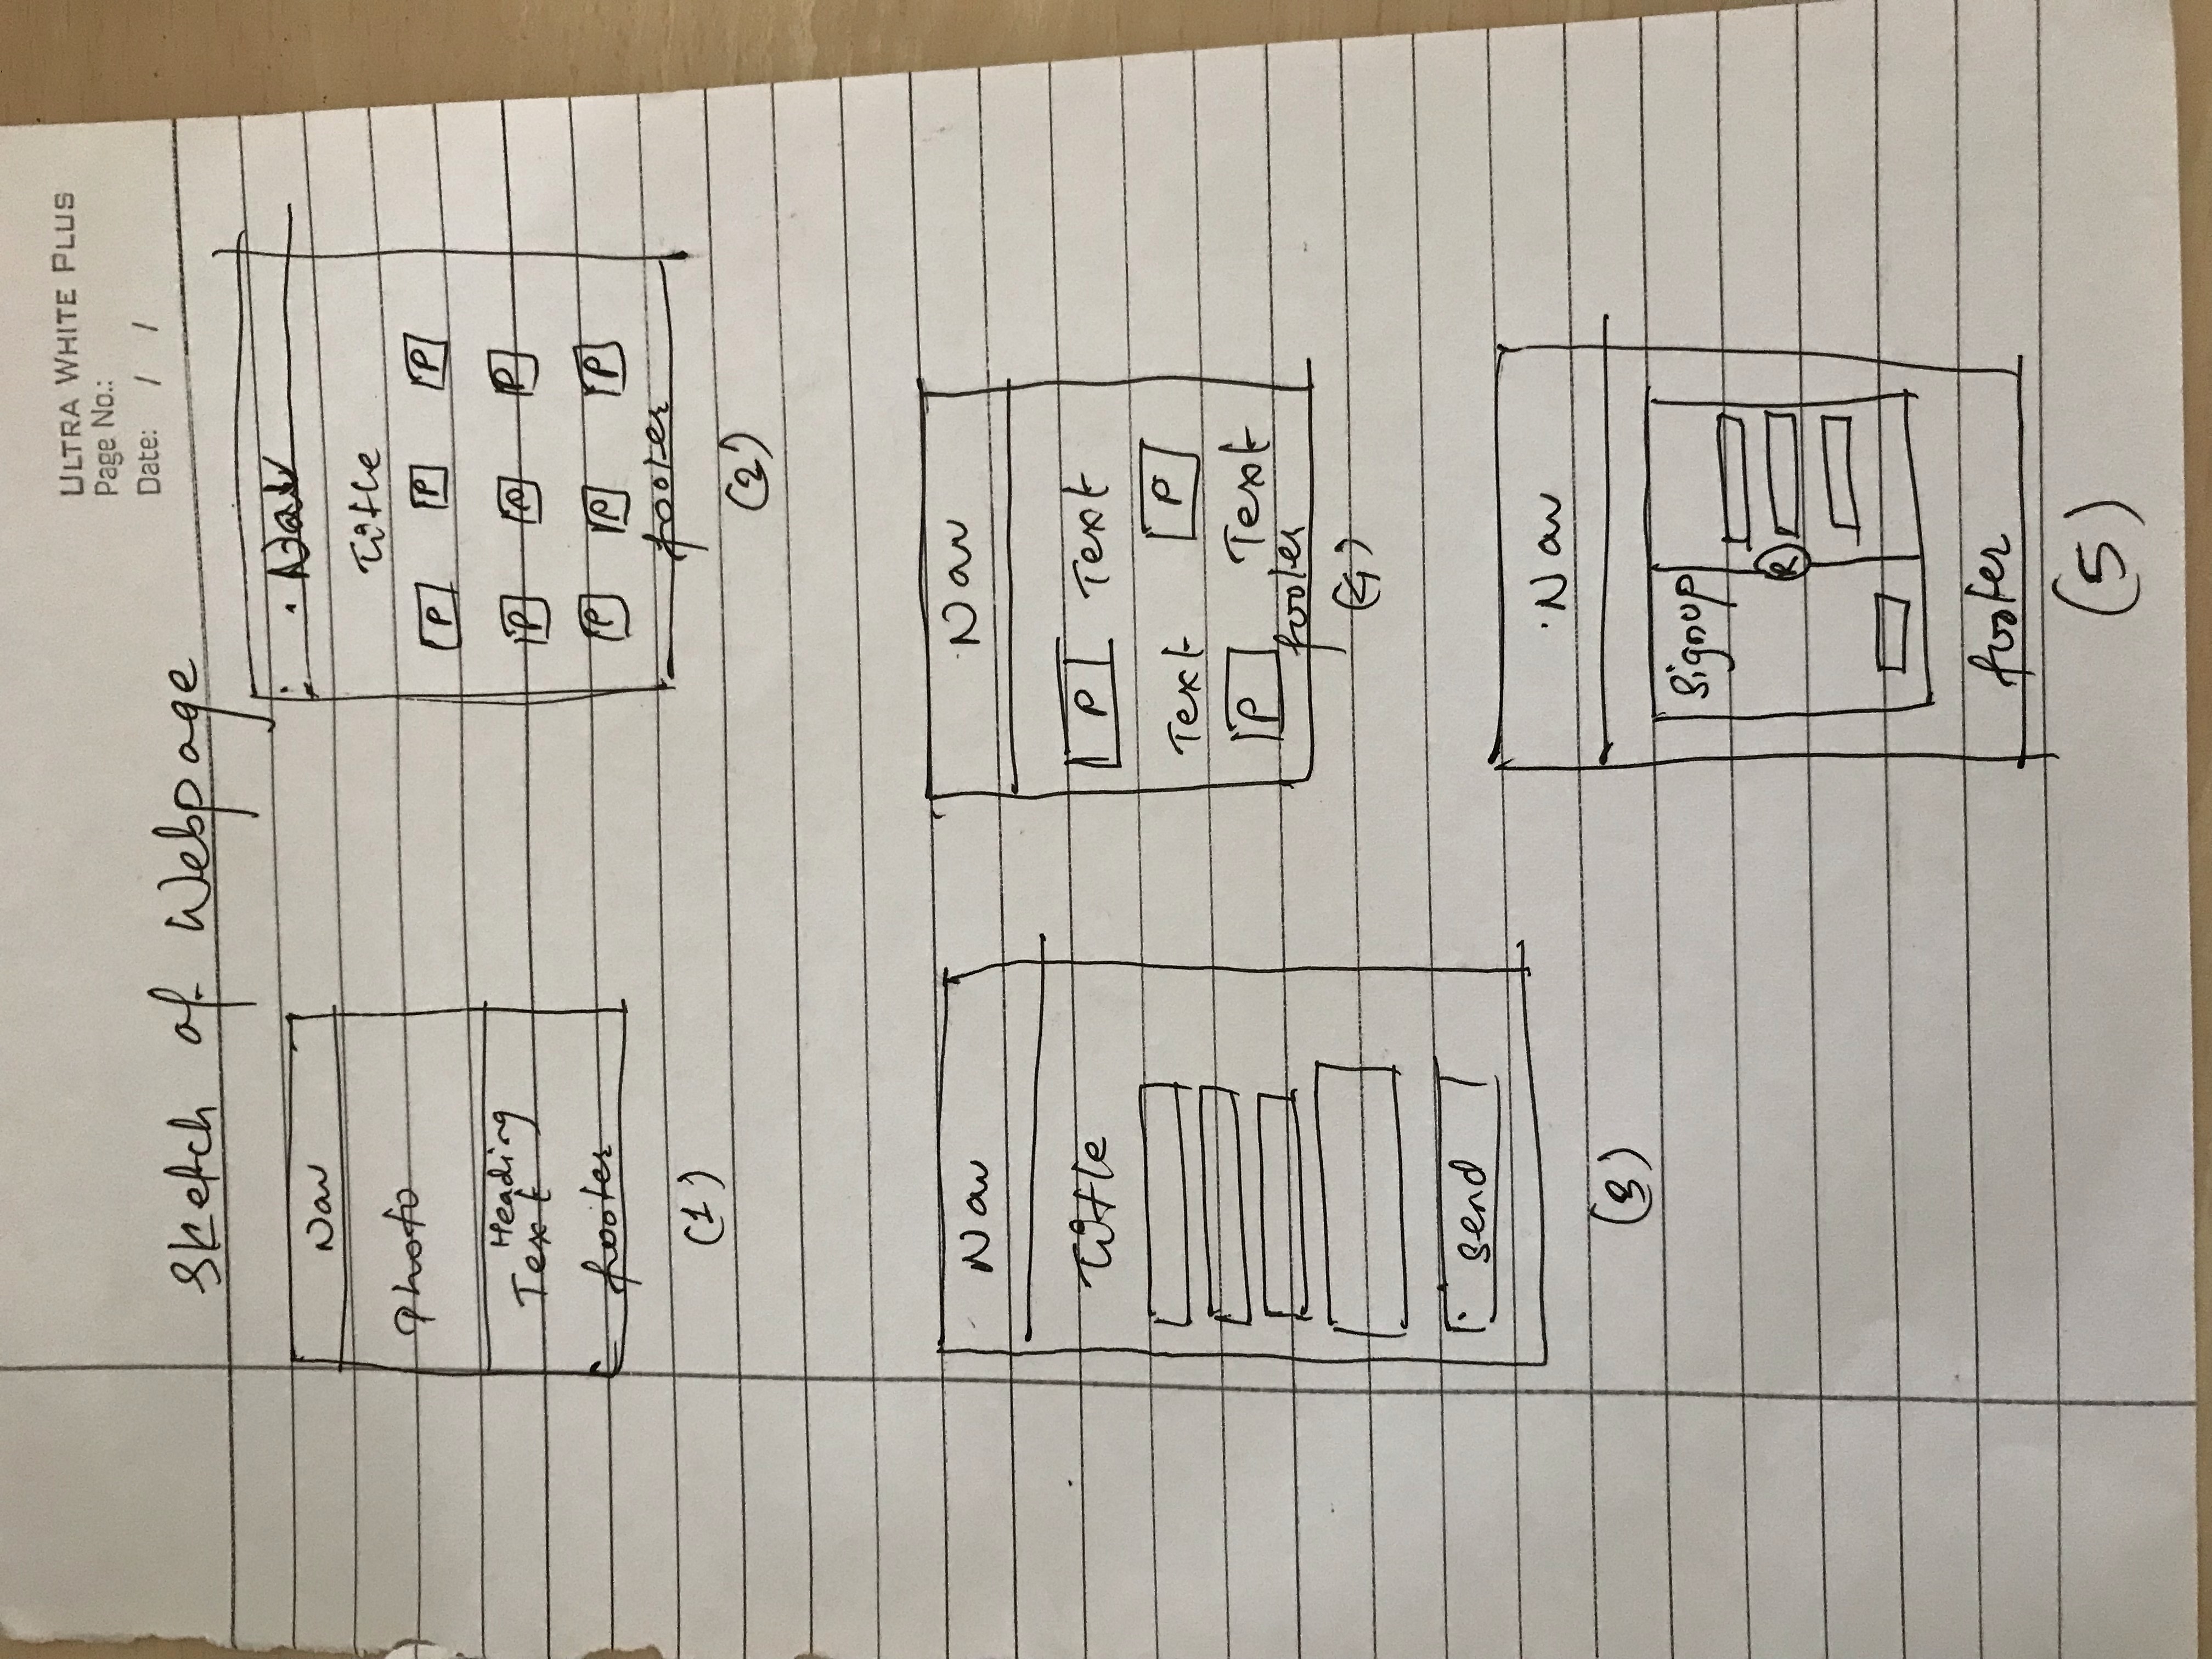 ULTRA WHITE PLUS
Page No.:
Date: / /
Sketch of Webpage
Nav
Photo
Heading
Text
footer
(1)
Nav
Title
P P P
P P P
P P P
footer
(2)
Nav
Title
Send
(3)
Nav
P Text
Text P
P Text
footer
(4)
Nav
Signup
R
footer
(5)